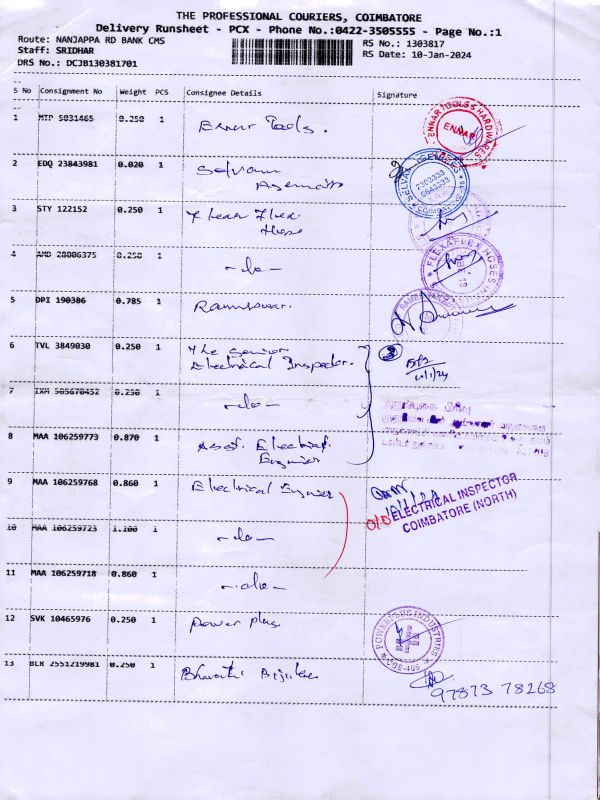 THE PROFESSIONAL COURIERS, COIMBATORE
Delivery Runsheet - PCX - Phone No.:0422-3505555 - Page No.:1
Route: NANJAPPA RD BANK CMS
RS No.: 1303817
Staff: SRIDHAR
RS Date: 10-Jan-2024
DRS No.: DCJB130381701
S No Consignment No Weight PCS Consignee Details Signature
1 MTP 5031465 0.250 1 Ennar Tools.
ENNAR TOOLS & HARDWARES
ENNAR
2 EDQ 23843981 0.020 1 Selvam
2303333
COIMBATORE
3 STY 122152 0.250 1 Flex
Hose
4 AMD 28006375 0.250 1 -do-
FLEXAFLEX HOSES
5 DPI 190386 0.785 1
6 TVL 3849030 0.250 1 The Senior
Electrical Inspector.
10/1/24
7 IXM 505670452 0.250 1 -do-
8 MAA 106259773 0.870 1 Asst. Electrical
Engineer
9 MAA 106259768 0.860 1 Electrical Engineer
O/O ELECTRICAL INSPECTOR
COIMBATORE (NORTH)
10 MAA 106259723 1.100 1 -do-
11 MAA 106259718 0.860 1 -do-
12 SVK 10465976 0.250 1 Power Plus.
POWERPLUS INDUSTRIES
13 BLR 2551219981 0.250 1 Bharathi
97873 78268